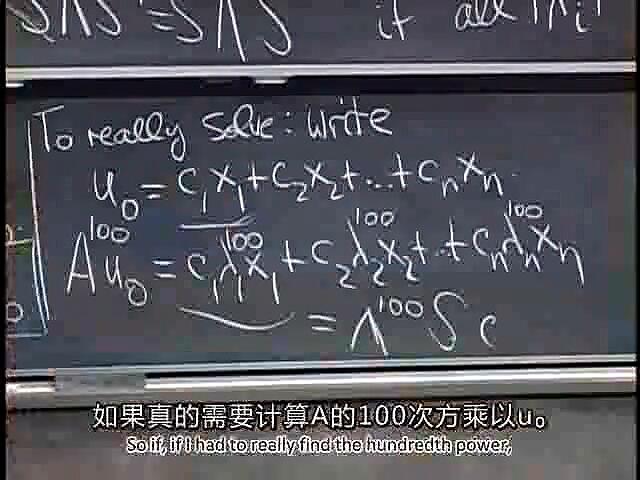 SΛS = SΛS if all |λi|
To really solve: write
u₀ = c₁x₁ + c₂x₂ + ... + cₙxₙ
A¹⁰⁰u₀ = c₁λ₁¹⁰⁰x₁ + c₂λ₂¹⁰⁰x₂ + ... + cₙλₙ¹⁰⁰xₙ
= Λ¹⁰⁰ S c
如果真的需要计算A的100次方乘以u。
So if, if I had to really find the hundredth power,